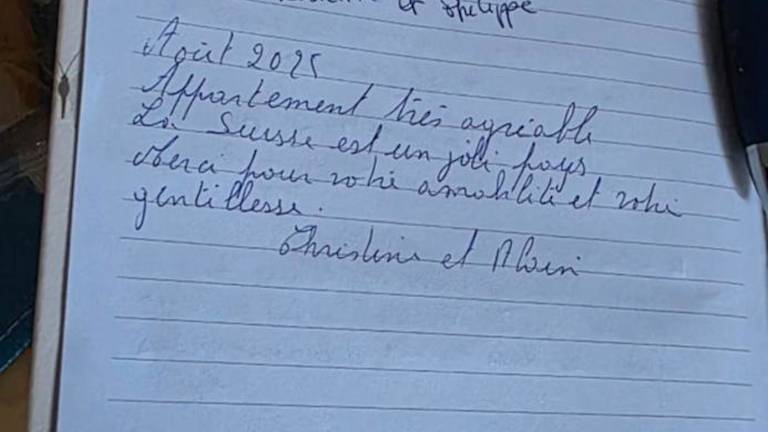 et Philippe
Août 2025
Appartement très agréable
La Suisse est un joli pays
Merci pour votre amabilité et votre
gentillesse.
Christine et Alain